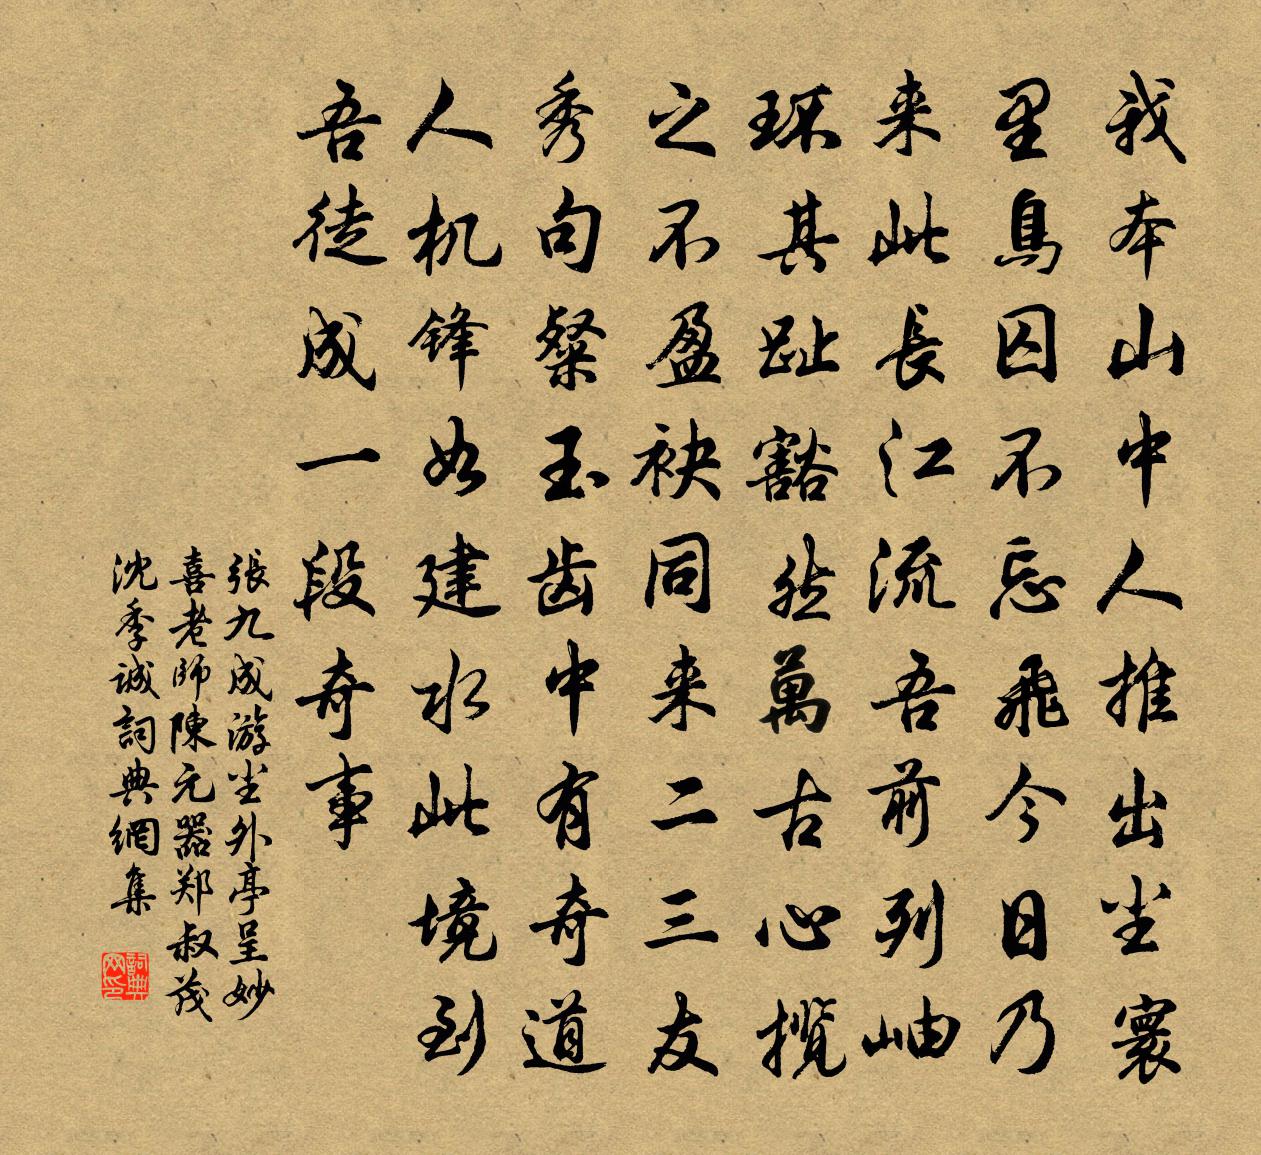 我本山中人推出尘寰
里鳥囚不忘飛今日乃
来此長江流吾前列岫
环其趾豁然萬古心揽
之不盈袂同来二三友
秀句粲玉齿中有奇道
人机锋如建水此境到
吾徒成一段奇事
張九成游尘外亭呈妙
喜老師陳元器郑叔茂
沈季诚詞典網集
詞典网印